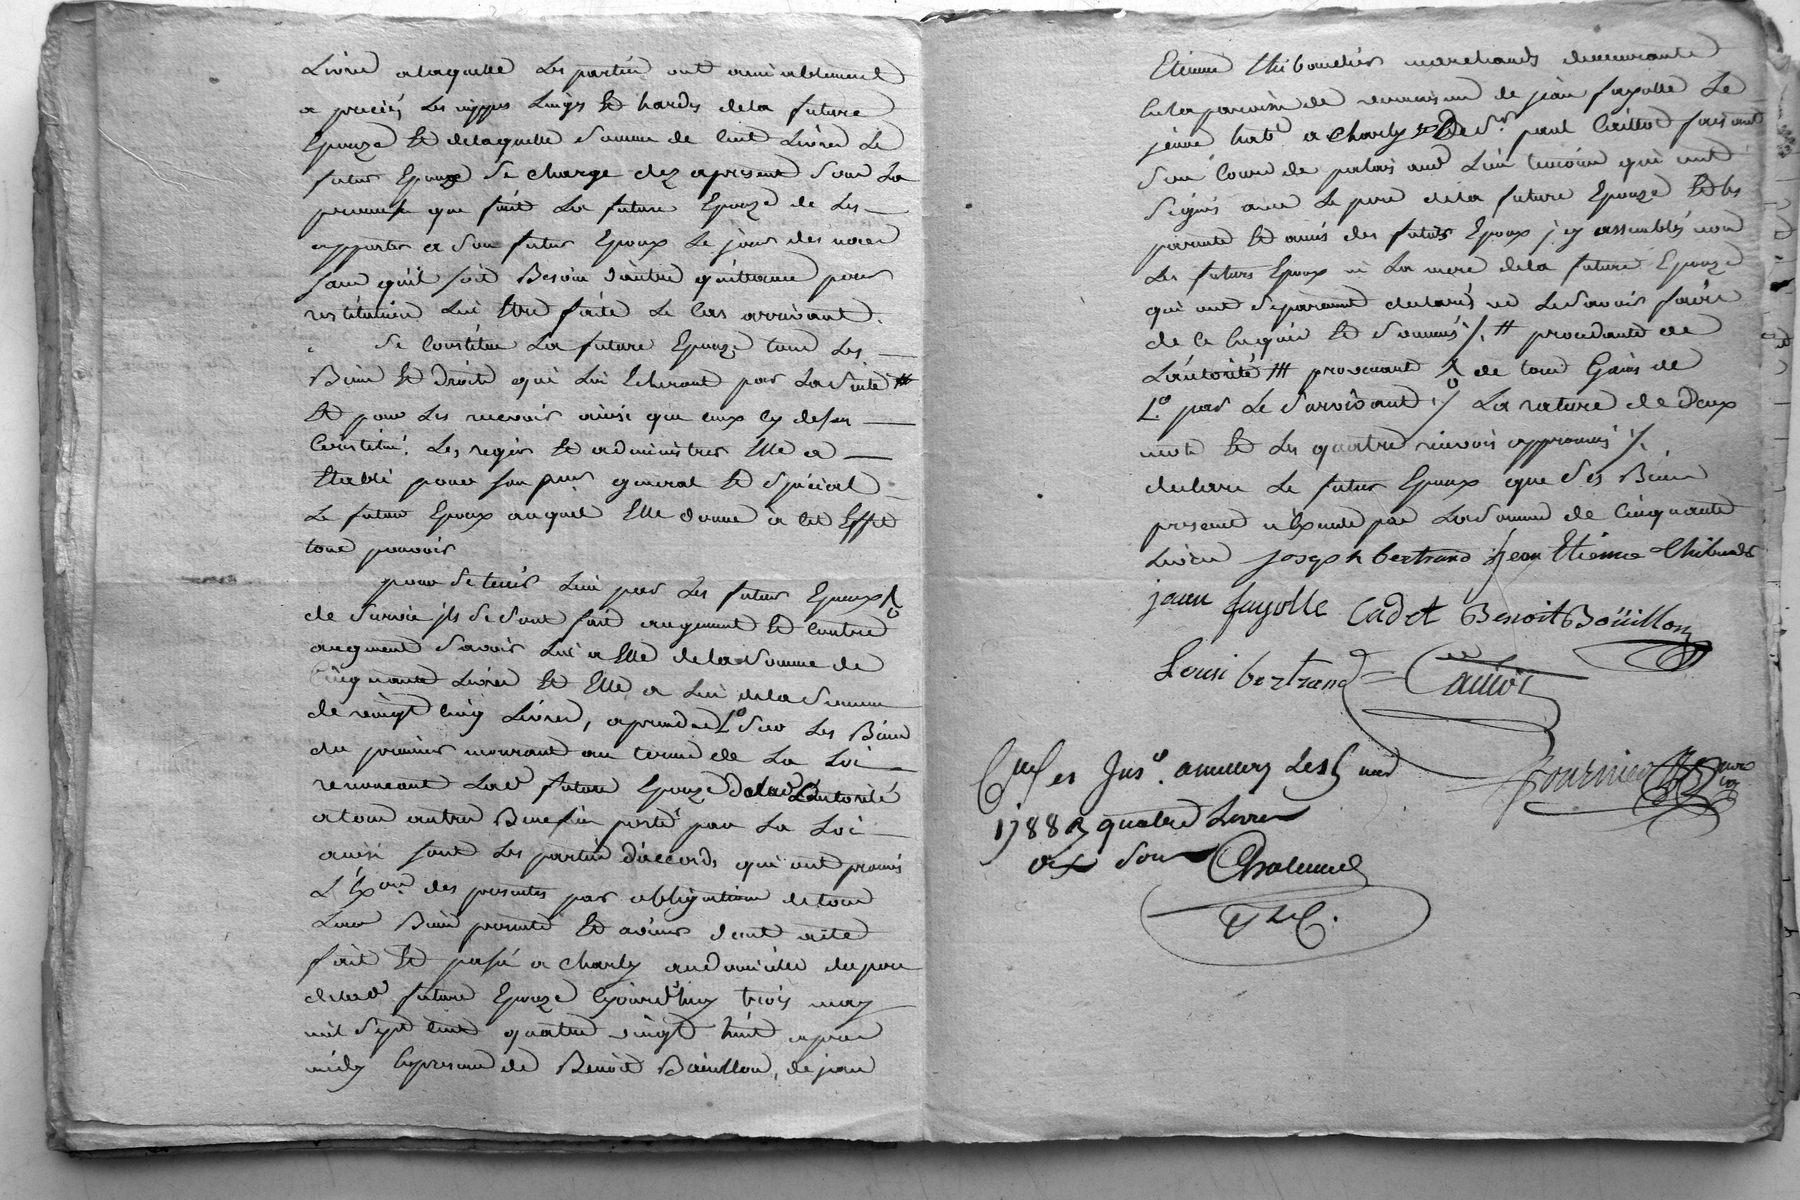 Livres a laquelle les parties ont amiablement
apreciés les nippes linges et hardes de la future
Epouze et de laquelle somme de cent Livres le
futur Epoux se charge dez apresent sous la
promesse que fait la future Epouze de les
apporter a son futur Epoux le jour des noces
sans qu'il soit Besoin d'autre quittance pour
restitution lui Etre faite le Cas arrivant.
Se Constitue la future Epouze tous les
Biens et droits qui lui Echeront par la suite #
et pour les recevoir ainsi que ceux cy dessus
Constitué. les regir et administrer Elle a
Etabli pour son pur general et special
le futur Epoux auquel Elle donne à cet Effet
tous pouvoirs
pour tenir lieu par les futurs Epoux
de survie jls se sont fait augment et contre
augment savoir lui a Elle de la somme de
Cinquante Livres et Elle a lui de la somme
de vingt cinq Livres, a prendre Lo sur les Biens
du premier mourant au terme de la Loi
renonceant lad future Epouze de L'autorité
a tous autres Benefices portés par la Loi
ainsi sont les parties d'accords qui ont promis
L'Exon des presentes par obligation de tous
leurs Biens presents et avenir dont acte
fait et passé a Charly au Domicile du pere
de lad future Epouze Cejourd'huy trois may
mil sept cent quatre vingt huit apres
midy En presence de Benoit Boüillon, de jean
Etienne thiboudier marchands demeurants
En la paroisse de de jean fayolle le
jeune habt a Charly et de Sr paul Caillot faisant
son Cours de palais aud Lieu temoins qui ont
signés avec le pere de la future Epouze et les
parents et amis des futurs Epoux j cy assemblés non
les futurs Epoux ni la mere de la future Epouze
qui ont separement declarés ne le savoir faire
de ce Enquis et sommés ./. # procedants de
L'autorité ## provenant de tous Gains de
Lo par le survivant ./ La rature de deux
mots et les quatre renvois approuvés ./.
declare le futur Epoux que ses Biens
presents n'Exede pas la somme de Cinquante
Livres joseph bertrand jean Etienne thiboudier
jean fayolle Cadet Benoit Boüillon
Louis bertrand Caillot
Fournier
Clle et Inso. a millery les
1788 R quatre livres
dix sous